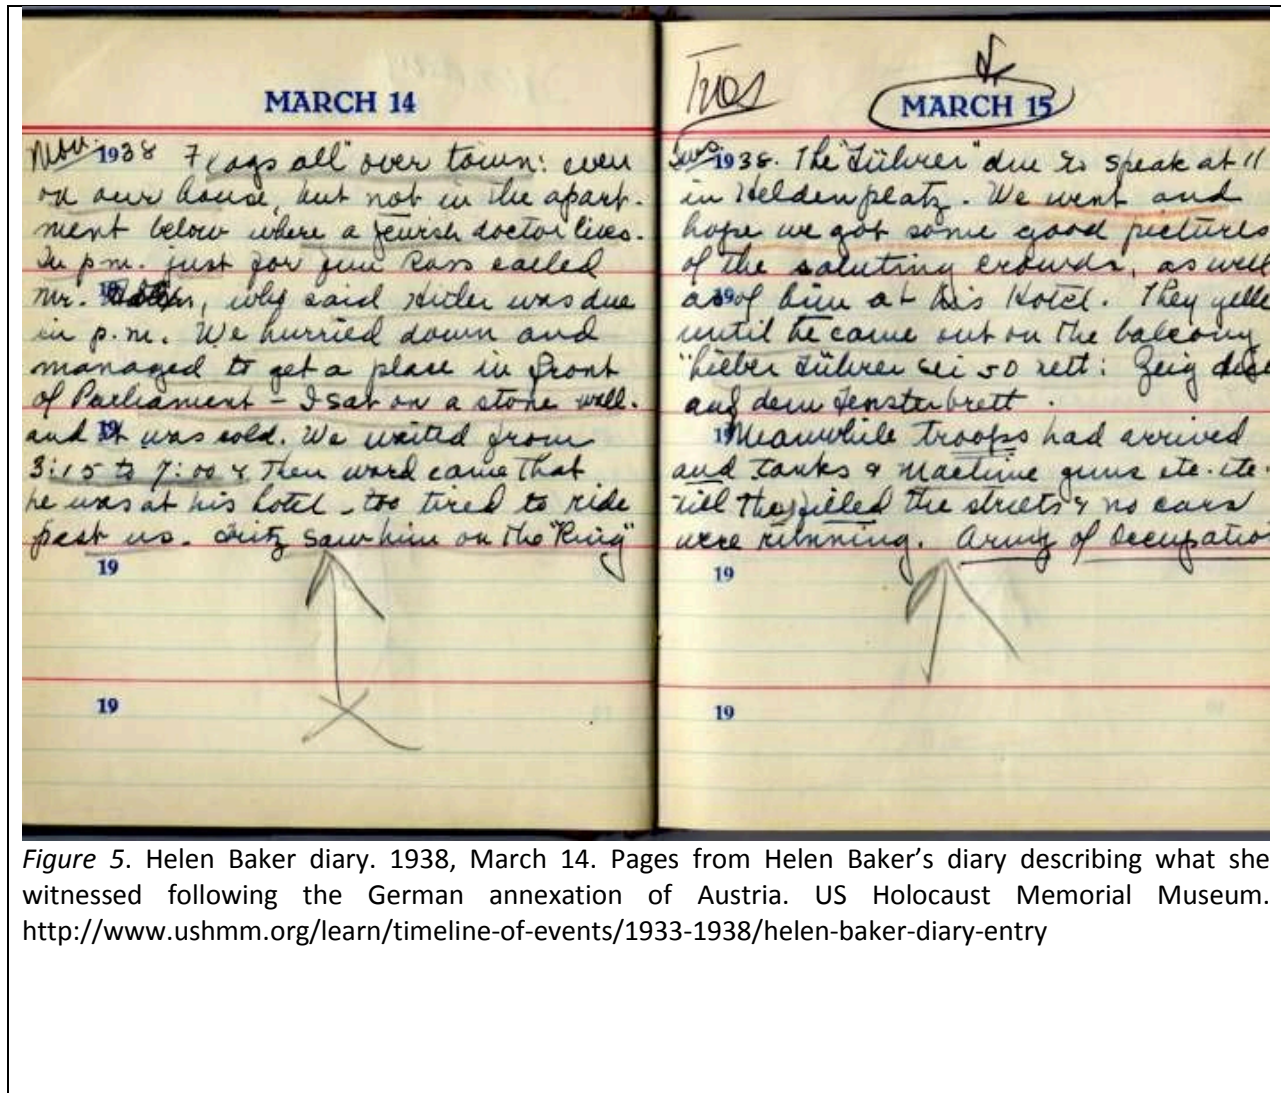 MARCH 14
Mon. 1938 Flags all over town: even
on our house, but not in the apart-
ment below where a Jewish doctor lives.
In p.m. just for fun Ross called
Mr. , why said Hitler was due
in p.m. We hurried down and
managed to get a place in front
of Parliament – I sat on a stone wall.
and it was cold. We waited from
3:15 to 7:00 & then word came that
he was at his hotel – too tired to ride
past us. Fritz saw him on the "Ring"
19
19
Tues
MARCH 15
1938. The "Führer" due to speak at 11
in Heldenplatz. We went and
hope we got some good pictures
of the saluting crowds, as well
as of him at his Hotel. They yelle
until he came out on the balcony
"Lieber Führer sei so nett: Zeig
auf dem Fensterbrett.
Meanwhile troops had arrived
and tanks & machine guns etc. etc.
till they filled the streets & no cars
were running. Army of Occupatio
19
19
Figure 5. Helen Baker diary. 1938, March 14. Pages from Helen Baker’s diary describing what she
witnessed following the German annexation of Austria. US Holocaust Memorial Museum.
http://www.ushmm.org/learn/timeline-of-events/1933-1938/helen-baker-diary-entry